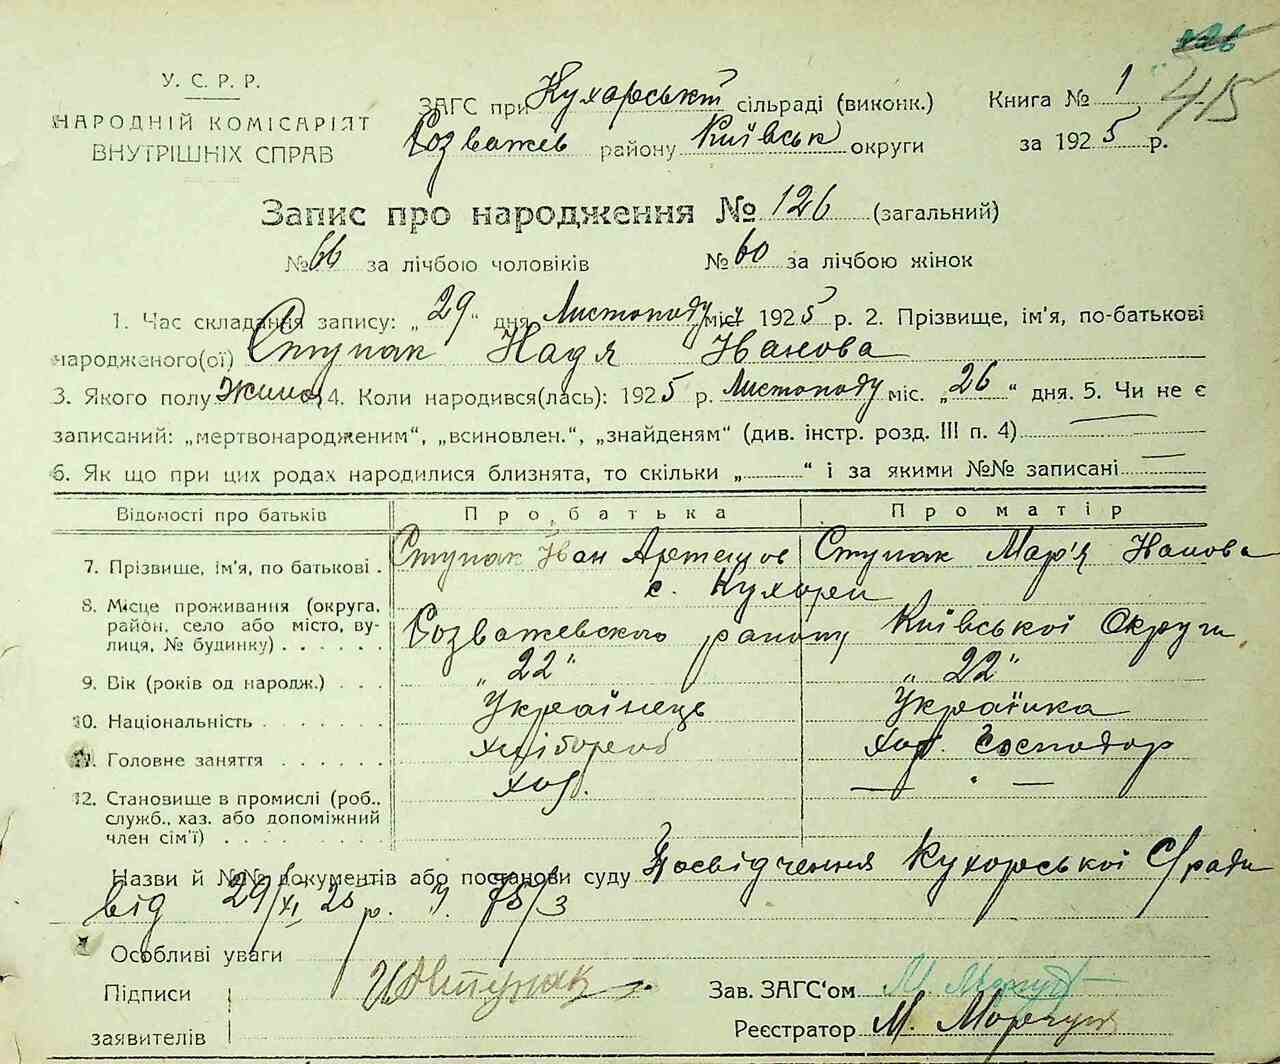 У. С. Р. Р.
НАРОДНІЙ КОМІСАРІЯТ
ВНУТРІШНІХ СПРАВ
ЗАГС при Кухарській сільраді (виконк.)
Розважев району Київськ округи
Книга № 1
415
за 1925 р.
Запис про народження № 126 (загальний)
№ 66 за лічбою чоловіків № 60 за лічбою жінок
1. Час складання запису: „29" дня Листопаду міс. 1925 р. 2. Прізвище, ім'я, по-батькові
народженого(ої) Ступак Надя Іванова
3. Якого полу 4. Коли народився(лась): 1925 р. Листопаду міс. „26" дня. 5. Чи не є
записаний: „мертвонародженим", „всиновлен.", „знайденям" (див. інстр. розд. III п. 4)
6. Як що при цих родах народилися близнята, то скільки „—" і за якими №№ записані —
Відомості про батьків Про батька Про матір
7. Прізвище, ім'я, по батькові . Ступак Іван Артемов Ступак Мар'я Іванова
8. Місце проживання (округа, район, село або місто, вулиця, № будинку) . . . . . . с. Кухарі
Розважевского району Київської Округи
9. Вік (років од народж.) . . . „22" „22"
10. Національність . . . . . . . Українець Українка
11. Головне заняття . . . . . . хлібороб хаз. господар
12. Становище в промислі (роб., служб., хаз. або допоміжний член сім'ї) . . . . . . . . . хаз. — " —
Назви й №№ документів або постанови суду Посвідчення Кухарської С/ради
від 29/XI 25 р. ч. 75/3
Особливі уваги
Підписи
заявителів
Ступак
Зав. ЗАГС'ом
Реєстратор М.